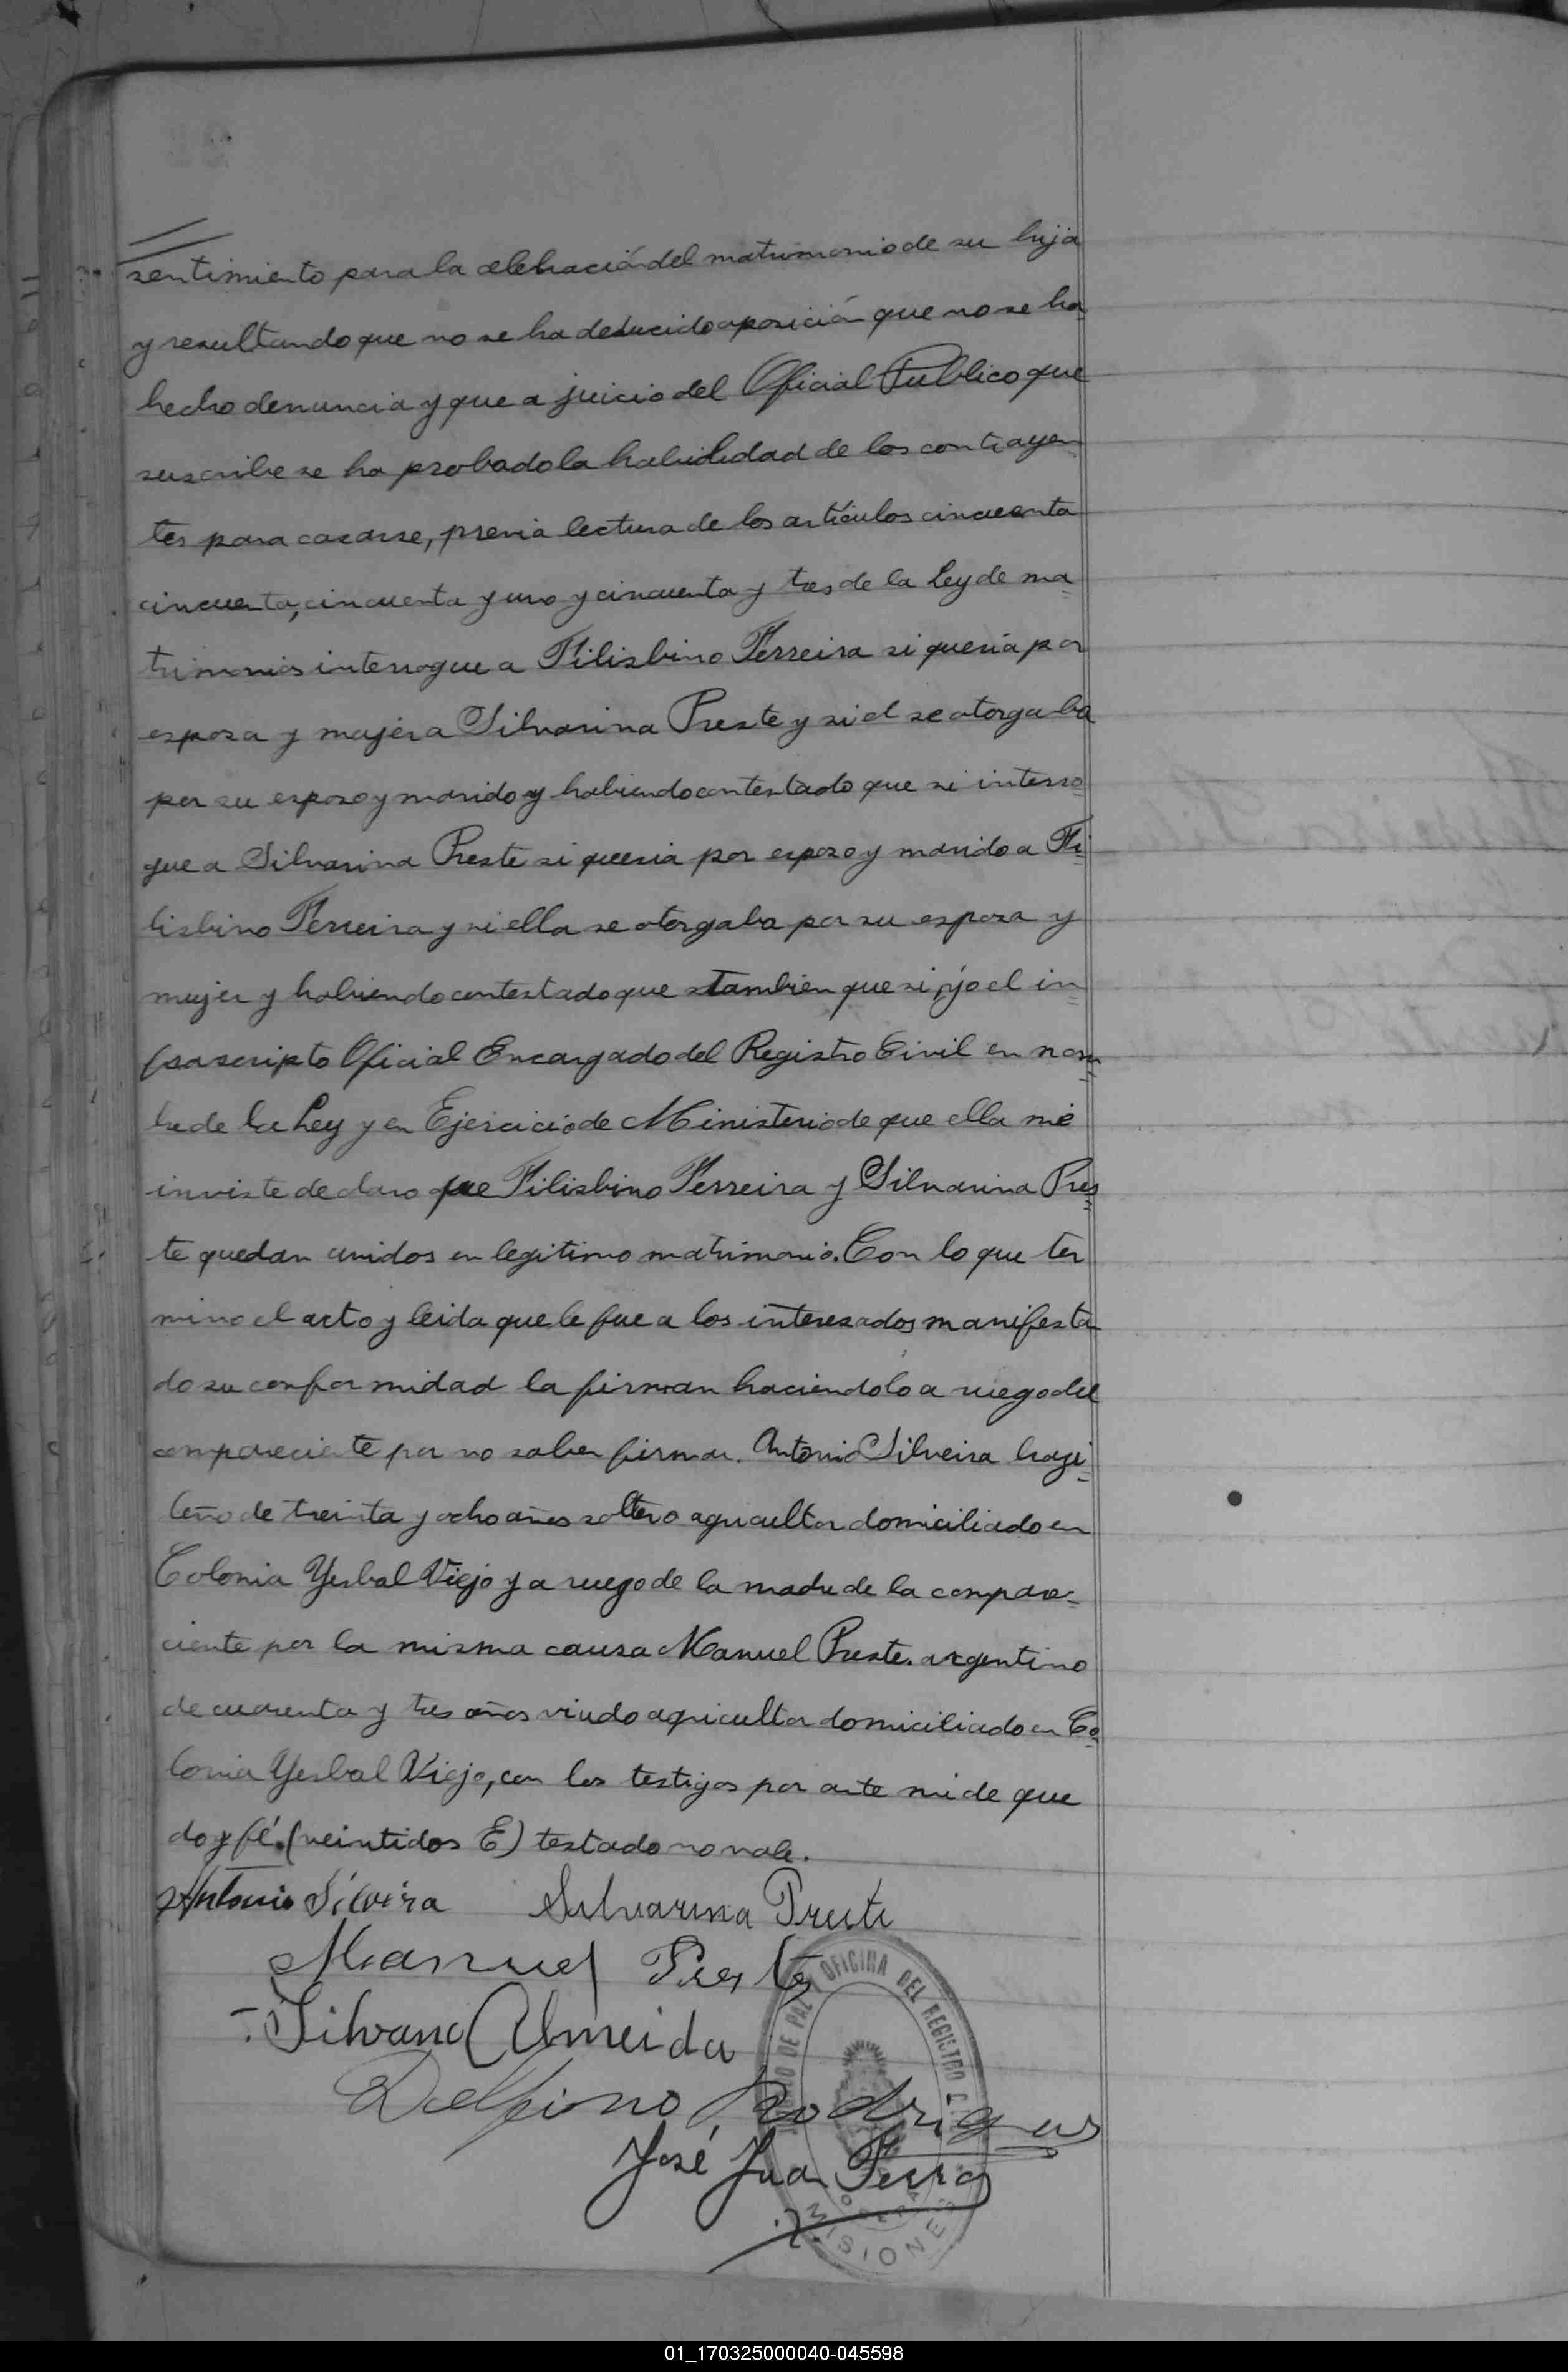 sentimiento para la celebración del matrimonio de su hija
y resultando que no se ha deducido oposición que no se ha
hecho denuncia y que a juicio del Oficial Publico que
suscribe se ha probado la habilidad de los contrayen
tes para casarse, previa lectura de los artículos cincuenta
cincuenta, cincuenta y uno y cincuenta y tres de la Ley de ma
trimonios interrogue a Filisbino Ferreira si quería por
esposa y mujer a Silvarina Preste y si el se otorgaba
por su esposo y marido y habiendo contestado que si interro
gue a Silvarina Preste si queria por esposo y marido a Fi
lisbino Ferreira y si ella se otorgaba por su esposa y
mujer y habiendo contestado que tambien que si, yo el in
frascripto Oficial Encargado del Registro Civil en nom
bre de la Ley y en Ejercicio de Ministerio de que ella me
inviste declaro que Filisbino Ferreira y Silvarina Pres
te quedan unidos en legitimo matrimonio. Con lo que ter
mino el acto y leida que le fue a los interesados manifesta
do su conformidad la firman haciendolo a ruego del
compareciente por no saber firmar. Antonio Silveira brazi
leño de treinta y ocho años soltero agricultor domiciliado en
Colonia Yerbal Viejo y a ruego de la madre de la compare-
ciente por la misma causa Manuel Preste. argentino
de cuarenta y tres años viudo agricultor domiciliado en Co
lonia Yerbal Viejo, con los testigos por ante mi de que
doy fé. (veintidos E) testado no vale.
Antonio Silveira Silvarina Preste
Manuel Preste
Silvano Almeida
Delfino Rodrigues
José Juan Ferra
OFICINA DEL REGISTRO
DE PAZ
MISIONES
01_170325000040-045598